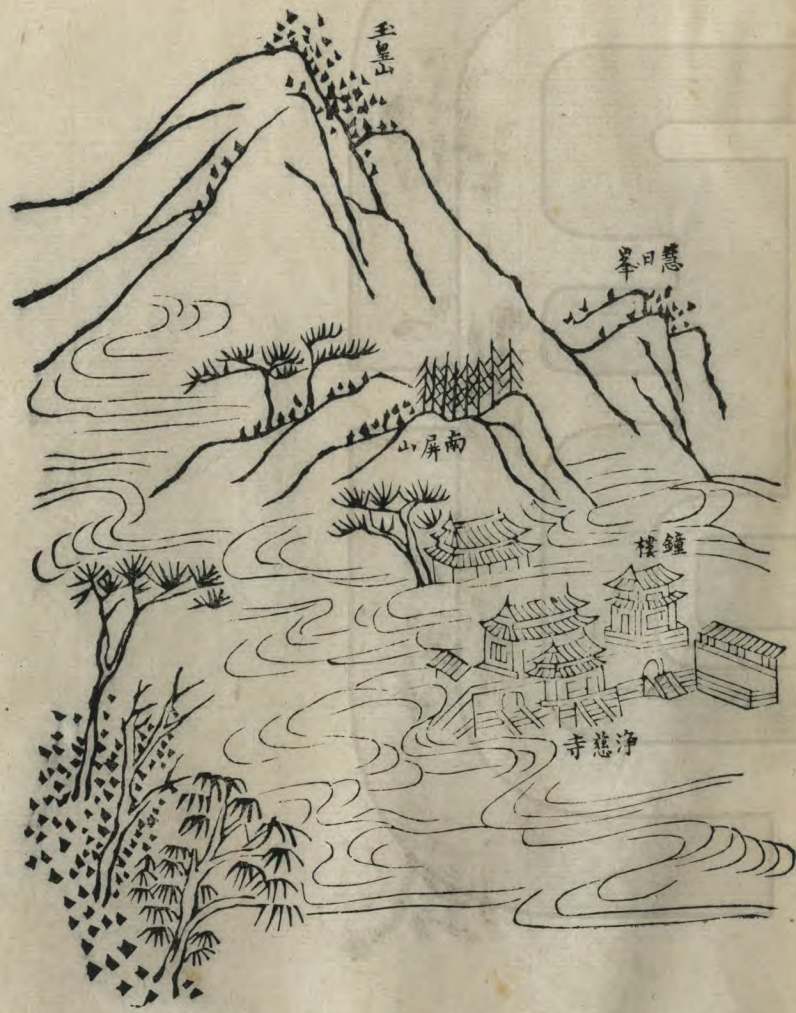 玉皇山
慧日峯
南屏山
鐘樓
淨慈寺